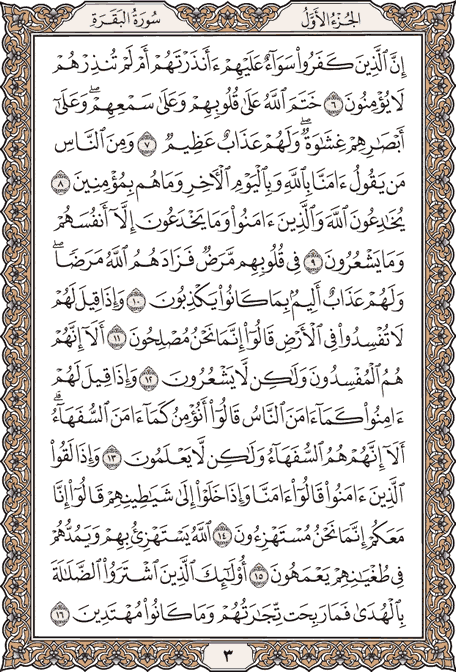 الجُزءُ الأَوَّلُ
سُورَةُ البَقَرَةِ
إِنَّ ٱلَّذِينَ كَفَرُوا۟ سَوَآءٌ عَلَيْهِمْ ءَأَنذَرْتَهُمْ أَمْ لَمْ تُنذِرْهُمْ
لَا يُؤْمِنُونَ ٦ خَتَمَ ٱللَّهُ عَلَىٰ قُلُوبِهِمْ وَعَلَىٰ سَمْعِهِمْ ۖ وَعَلَىٰٓ
أَبْصَـٰرِهِمْ غِشَـٰوَةٌ ۖ وَلَهُمْ عَذَابٌ عَظِيمٌ ٧ وَمِنَ ٱلنَّاسِ
مَن يَقُولُ ءَامَنَّا بِٱللَّهِ وَبِٱلْيَوْمِ ٱلْـَٔاخِرِ وَمَا هُم بِمُؤْمِنِينَ ٨
يُخَـٰدِعُونَ ٱللَّهَ وَٱلَّذِينَ ءَامَنُوا۟ وَمَا يَخْدَعُونَ إِلَّآ أَنفُسَهُمْ
وَمَا يَشْعُرُونَ ٩ فِى قُلُوبِهِم مَّرَضٌ فَزَادَهُمُ ٱللَّهُ مَرَضًا ۖ
وَلَهُمْ عَذَابٌ أَلِيمٌۢ بِمَا كَانُوا۟ يَكْذِبُونَ ١٠ وَإِذَا قِيلَ لَهُمْ
لَا تُفْسِدُوا۟ فِى ٱلْأَرْضِ قَالُوٓا۟ إِنَّمَا نَحْنُ مُصْلِحُونَ ١١ أَلَآ إِنَّهُمْ
هُمُ ٱلْمُفْسِدُونَ وَلَـٰكِن لَّا يَشْعُرُونَ ١٢ وَإِذَا قِيلَ لَهُمْ
ءَامِنُوا۟ كَمَآ ءَامَنَ ٱلنَّاسُ قَالُوٓا۟ أَنُؤْمِنُ كَمَآ ءَامَنَ ٱلسُّفَهَآءُ ۗ
أَلَآ إِنَّهُمْ هُمُ ٱلسُّفَهَآءُ وَلَـٰكِن لَّا يَعْلَمُونَ ١٣ وَإِذَا لَقُوا۟
ٱلَّذِينَ ءَامَنُوا۟ قَالُوٓا۟ ءَامَنَّا وَإِذَا خَلَوْا۟ إِلَىٰ شَيَـٰطِينِهِمْ قَالُوٓا۟ إِنَّا
مَعَكُمْ إِنَّمَا نَحْنُ مُسْتَهْزِءُونَ ١٤ ٱللَّهُ يَسْتَهْزِئُ بِهِمْ وَيَمُدُّهُمْ
فِى طُغْيَـٰنِهِمْ يَعْمَهُونَ ١٥ أُو۟لَـٰٓئِكَ ٱلَّذِينَ ٱشْتَرَوُا۟ ٱلضَّلَـٰلَةَ
بِٱلْهُدَىٰ فَمَا رَبِحَت تِّجَـٰرَتُهُمْ وَمَا كَانُوا۟ مُهْتَدِينَ ١٦
٣